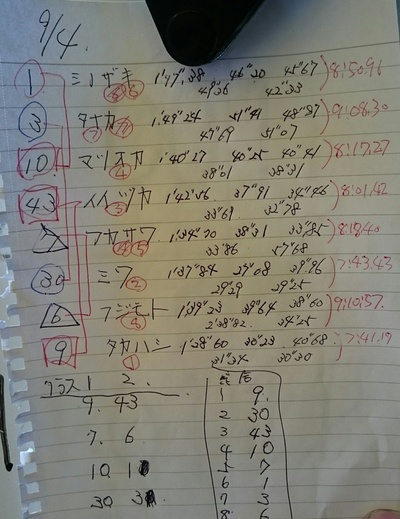 9/4.
1 ミノザキ 1'47"38 46"20 45"67 8:50.96
49"36 42"33
3 タナカ 1'49"24 51"41 48"87 9:08.30
47"69 51"07
10 マツオカ ④ 1'40"27 40"25 40"41 8:17.27
38"01 38"31
43 イイヅカ ③ 1'42"56 37"91 34"46 8:01.42
33"69 32"78
7 フカザワ 1'34"70 38"31 33"85
33"86
30 ミワ ② 1'37"84 29"08 39"96 7:43.43
29"29 29"25
6 フジモト ⑧ 1'39"23 39"64 38"60 9:10:57.
2'38"82. 34"25
9 タカハシ ① 1'38"60 30"23 40"68 7:41.19
31"34 30"30
クラス 1 2.
9. 43
7. 6
10
30 3
1 9.
2 30
3 43
4 10
5 7
6 1
7 3
8 6